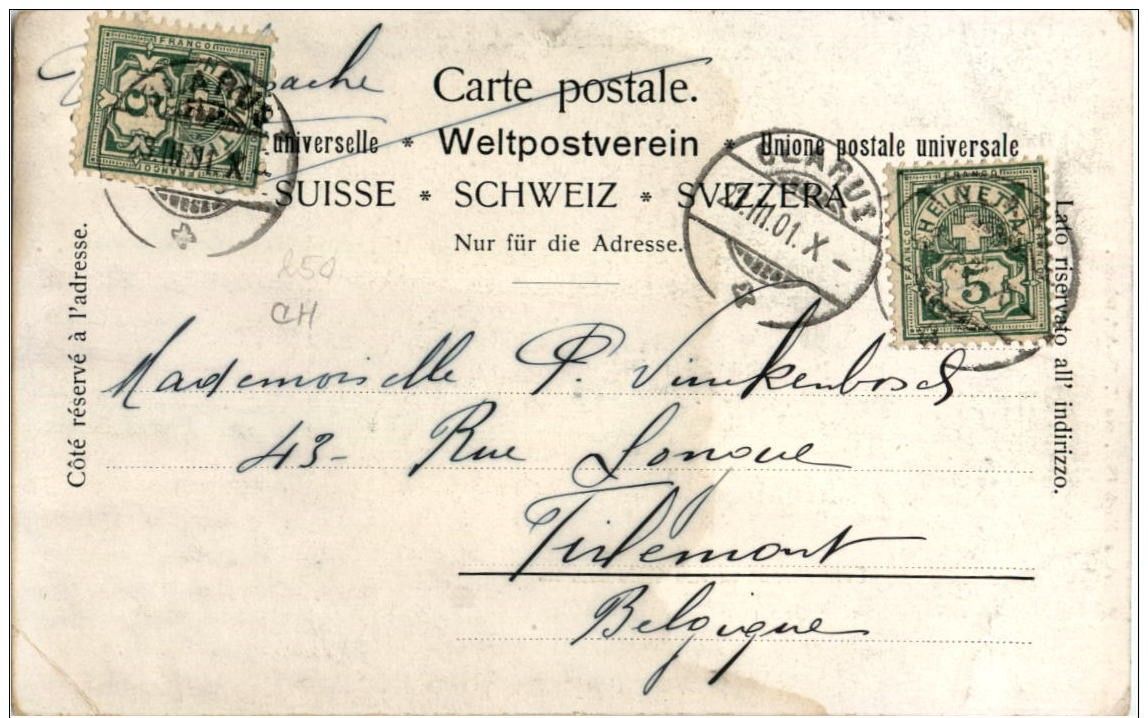 Carte postale.
universelle * Weltpostverein * Unione postale universale
SUISSE * SCHWEIZ * SVIZZERA
Nur für die Adresse.
Côté réservé à l'adresse.
Lato riservato all' indirizzo.
FRANCO
HELVETIA
5
FRANCO
5
GLARUS
III.01.X-
III.01.X
250
CH
Mademoiselle P. Vinckenbosch
43- Rue Longue
Tirlemont
Belgique